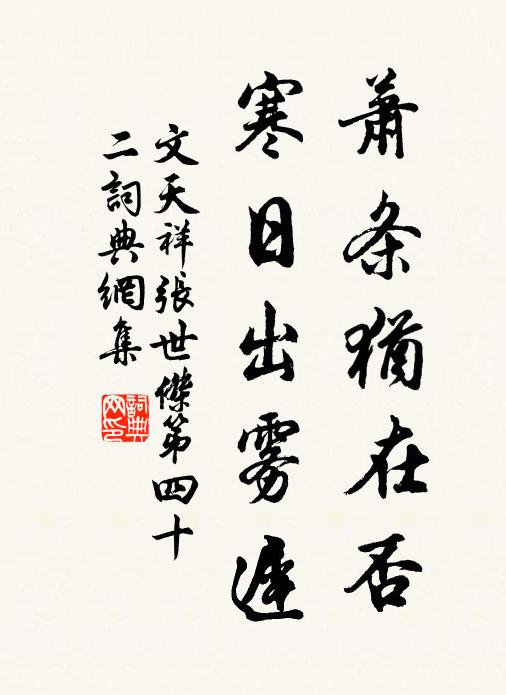 蕭条猶在否
寒日出雾遲
文天祥張世傑第四十
二詞典網集
詞典网印